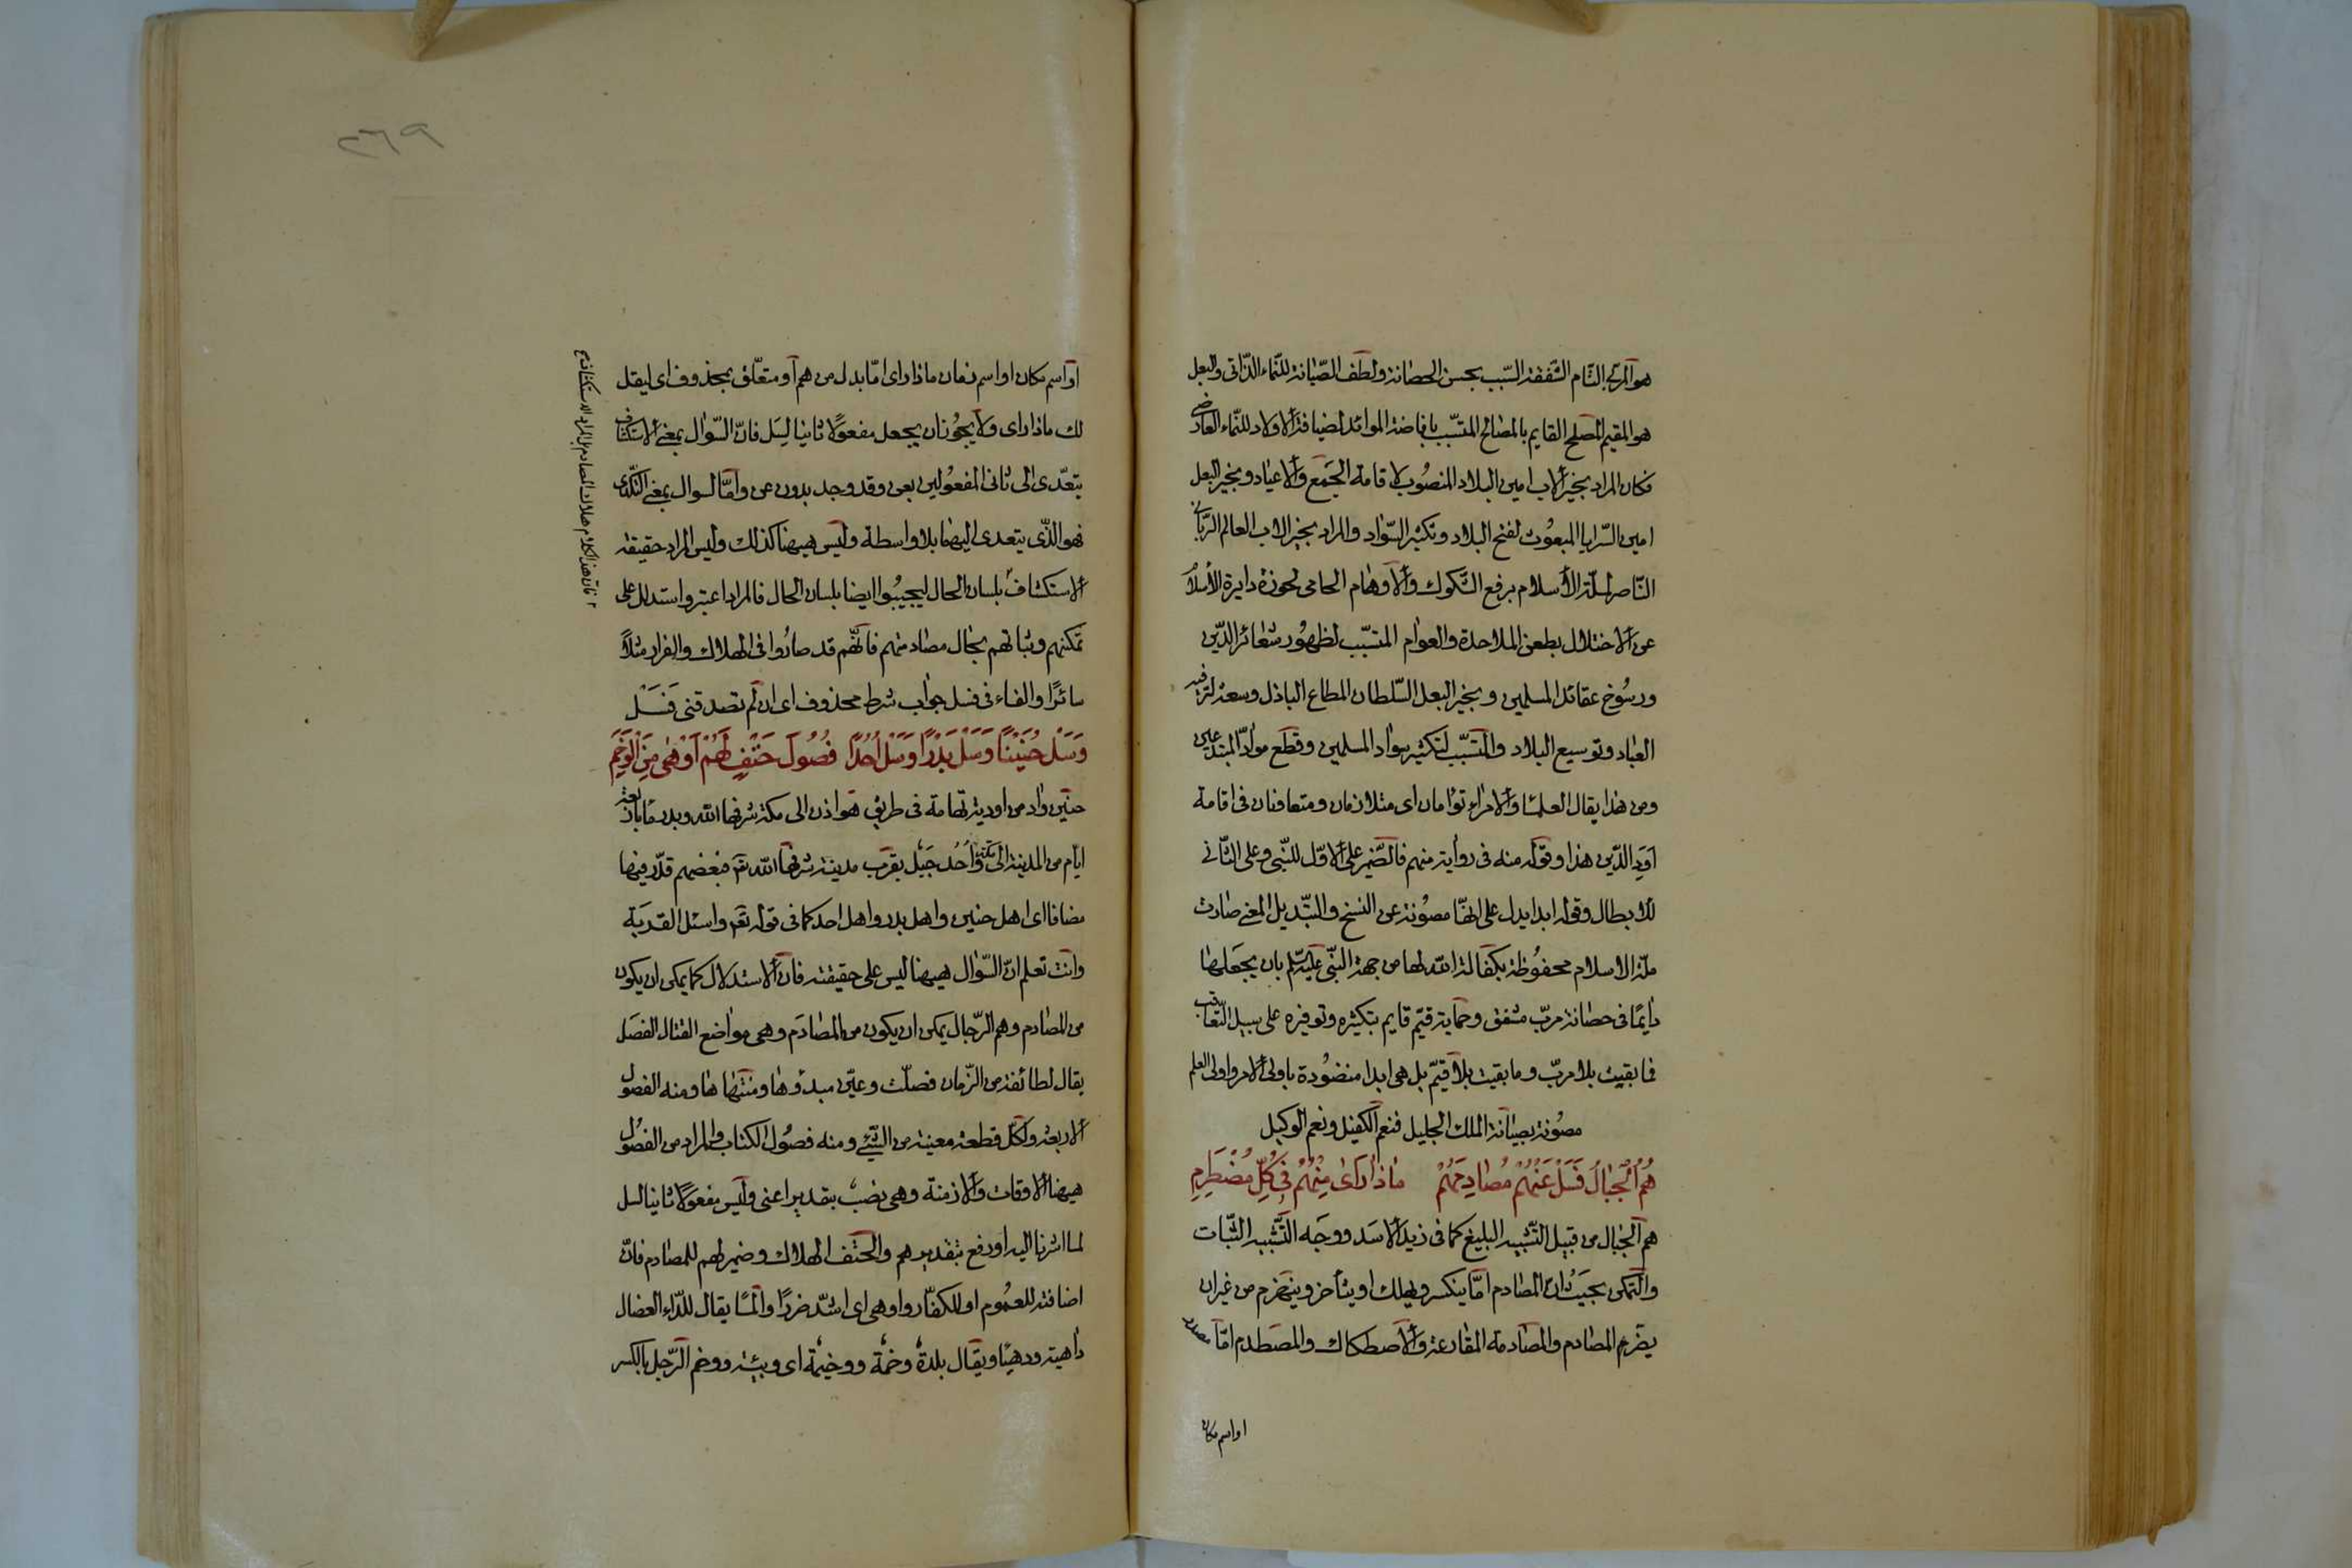 هو المربّي التام الشفقة السبب بحسن الحضانة ولطف الصّيانة للنّماء الذّاتى والبعل
هو المقيم المصلح القايم بالمصالح المتسبّب بافاضة الموائد لضيافة الاولاد للنّماء العارضى
فكان المراد بخير الاب امين البلاد المنصُوب لاقامة الجمَع والاعياد وبخير البعل
امين السّرايا المبعُوث لفتح البلاد وتكثير السّواد والمراد بخير الاب العالم الربّانى
النّاصر لملّة الاسلام برفع الشّكوك والاوهام الحامى لحوزة دايرة الاسلام
عن الاختلال بطعن الملاحدة والعوام المتسبّب لظهُور شعائر الدّين
ورسُوخ عقائد المسلمين وبخير البعل السّلطان المطاع الباذل وسعه لترفيه
العباد وتوسيع البلاد والمتسبّب لتكثير سواد المسلمين وقطع موادّ المبتدعين
ومن هذا يقال العلما والامراء توأمان اى متلازمان ومتعاونان فى اقامة
اوَد الدّين هذا وقوله منه فى رواية منهم فالضّمير على الاوّل للنّبى وعلى الثّانى
للابطال وقوله ابدا يدل على انهّا مصُونة عن النسخ والتبّديل المعنى صارت
ملّة الاسلام محفوُظة بكفالة الله لها من جهة النّبى عليه السّلم بان يجعَلها
دايمًا فى حضانة مربّ مشفق وحماية قيّم قايم بتكثيره وتوفيره على سبيل التّعاقب
فما بقيت بلا مربّ وما بقيت بلا قيّم بل هى ابدا منضُودة باولى الامر واولى العلم
مصُونة بصيانة الملك الجليل فنعم الكفيل ونعم الوكيل
هُمُ الْجِبَالُ فَسَلْ عَنْهُمْ مُصَادِمَهُمْ مَاذَا رَاى مِنْهُمْ فِى كُلِّ مُضْطَرِمِ
هم الجبال من قبيل التّشبيه البليغ كما فى زيد الاسَد ووجَه التّشبيه الثّبات
والتمكن بحيَث ان المصادم امّا ينكسر ويهلك او يتأخر وينهزم من غير ان
يضرهم المصادم والمصادمة المقارعة والاصطكاك والمصطدم امّا مصدر
او اسم مكان
٢٦٩
او اسم مكان او اسم زمان ماذا راى امّا بدل من هم او متعلّق بمحذوف اى ليقل
لك ماذا راى ولا يجُوز ان يجعل مفعولًا ثانيا ليسَل فانّ السّؤال بمعنى الاستكشاف
يتعدّى الى ثانى المفعُولين بعن وقد وجد بدون عن وامّا السوال بمعنى التكدّى
فهو الذّى يتعدى اليهما بلا واسطة وليس هيهنا كذلك وليس المراد حقيقة
الاستكشاف بلسان الحال ليجيبُوا ايضا بلسان الحال فالمراد اعتبر واستدلل على
تمكنهم وثباتهم بحال مصادمهم فانّهم قد صارُوا فى الهلاك والفرار مثلًا
سائرًا والفاء فى فسل جواب شرط محذوف اى ان لم تصدقنى فَسَلْ
وَسَلْ حُنَيْنًا وَسَلْ بَدْرًا وَسَلْ اُحُدًا فُصُولَ حَتْفٍ لَهُمْ اَدْهٰى مِنَ الْوَخَمِ
حنين واد من اودية تهامة فى طريق هوازن الى مكة شرفها الله وبدر ما باربعة
ايام من المدينة الى مكة واُحُد جَبَل بقرب مدينة شرفها الله تع فبعضهم قدّر فيها
مضافا اى اهل حنين واهل بدر واهل احد كما فى قوله تع واسئل القرية
وانت تعلم ان السّؤال هيهنا ليس على حقيقته فان الاستدلال كما يمكن ان يكون
من المصادم وهم الرّجال يمكن ان يكون من المصادَم وهى مواضع القتال الفصَل
يقال لطائفة من الزّمان فصلّت وعيّن مبدؤها ومنتهاها ومنه الفصُول
الاربعة ولكلّ قطعة معينة من الشّئ ومنه فصُول الكتاب والمراد من الفصُول
هيهنا الاوقات والازمنة وهى نصبٌ بتقدير اعنى وليس مفعولًا ثانيا لسل
لما اشرنا اليه او رفع بتقدير هم والحتف الهلاك وضمير لهم للمصادم فانّ
اضافته للعمُوم او للكفّار وادهى اى اشدّ ضررًا والمًا يقال للدّاء العضال
داهية ودهيًا ويقال بلدة وخمة ووخيمة اى وبيئة ووخم الرّجل بالكسر